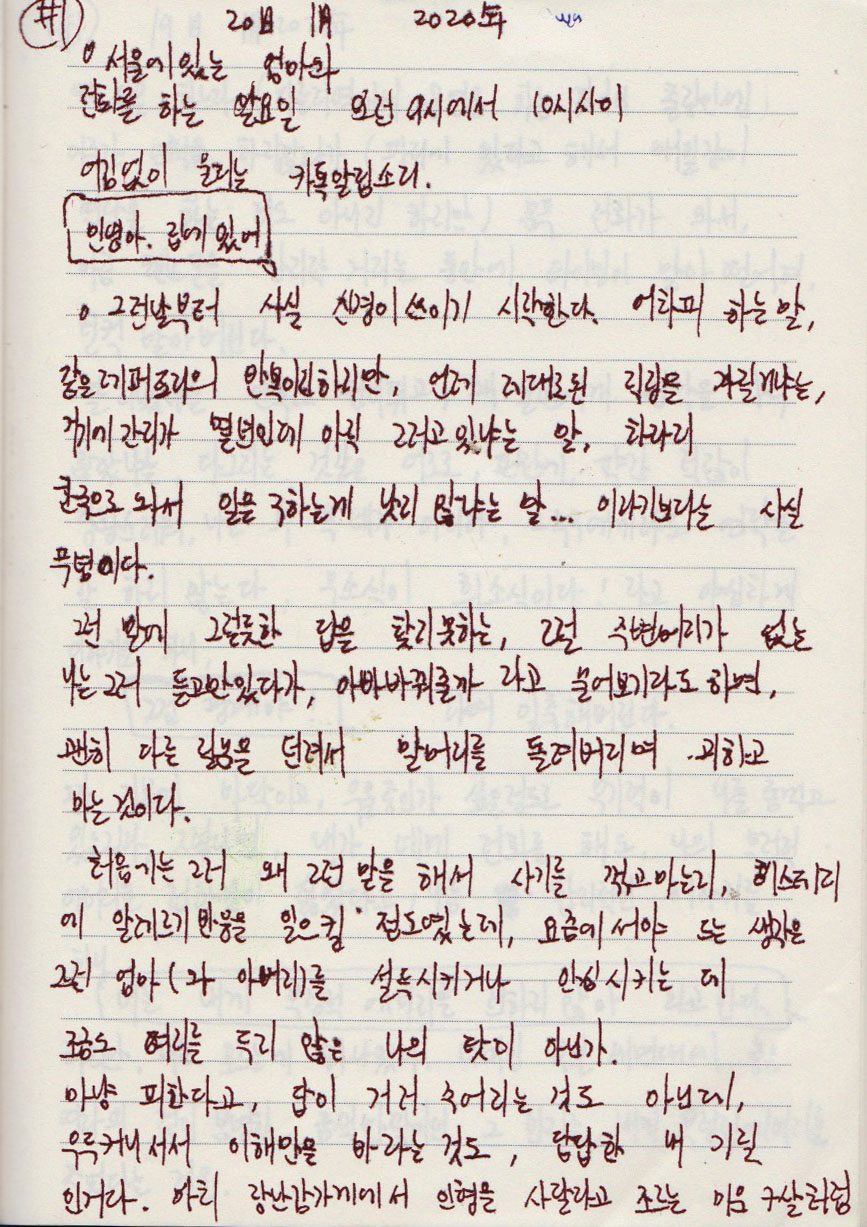 #1 20일 1月 2020年
서울에 있는 엄마와
전화를 하는 일요일 오전 9시에서 10시사이
어김없이 울리는 카톡알림소리.
인영아. 집에 있어
그런날부터 사실 신경이 쓰이기 시작한다. 어차피 하는 말,
같은 레퍼토리의 반복이긴하지만, 언제 제대로된 직장을 가질게냐는,
거기에 간지가 몇년인데 아직 그러고 있냐는 말, 차라리
한국으로 와서 일을 구하는게 낫지 않냐는 말... 이라기보다는 사실
푸념이다.
그런 말에 그럴듯한 답을 찾지못하는, 그런 주변머리가 없는
나는 그저 듣고만있다가, 아빠바꿔줄까 라고 물어보기라도 하면,
괜히 다른 질문을 던져서 말머리를 돌려버리며 피하고
마는것이다.
처음기는 그저 왜 그런 말을 해서 사기를 꺾고마는지, 히스테리
에 알레르기 반응을 일으킬 정도였는데, 요즘에서야 드는 생각은
그런 엄마(와 아버지)를 설득시키거나 안심시키는 데
조금도 여지를 두지 않은 나의 탓이 아닌가.
마냥 피한다고, 답이 거저 주어지는 것도 아닌데,
우두커니서서 이해만을 바라는것도, 답답한 내 기질
인거다. 마치 장난감가게에서 인형을 사달라고 조르는 마음 구살처럼